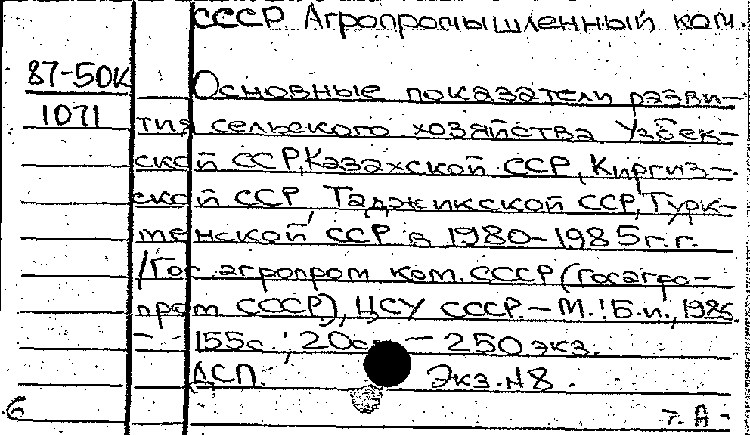 СССР Агропромышленный ком.
87-50К
1071
Основные показатели разви-
тия сельского хозяйства Узбек-
ской ССР, Казахской ССР, Киргиз-
ской ССР, Таджикской ССР, Турк-
менской ССР в 1980-1985 г.г.
/Гос. агропром ком. СССР (Госагро-
пром СССР), ЦСУ СССР. - М.: Б.и., 1986.
- 155с.; 20см - 250 экз.
ДСП. Экз. №8.
6
7. А -